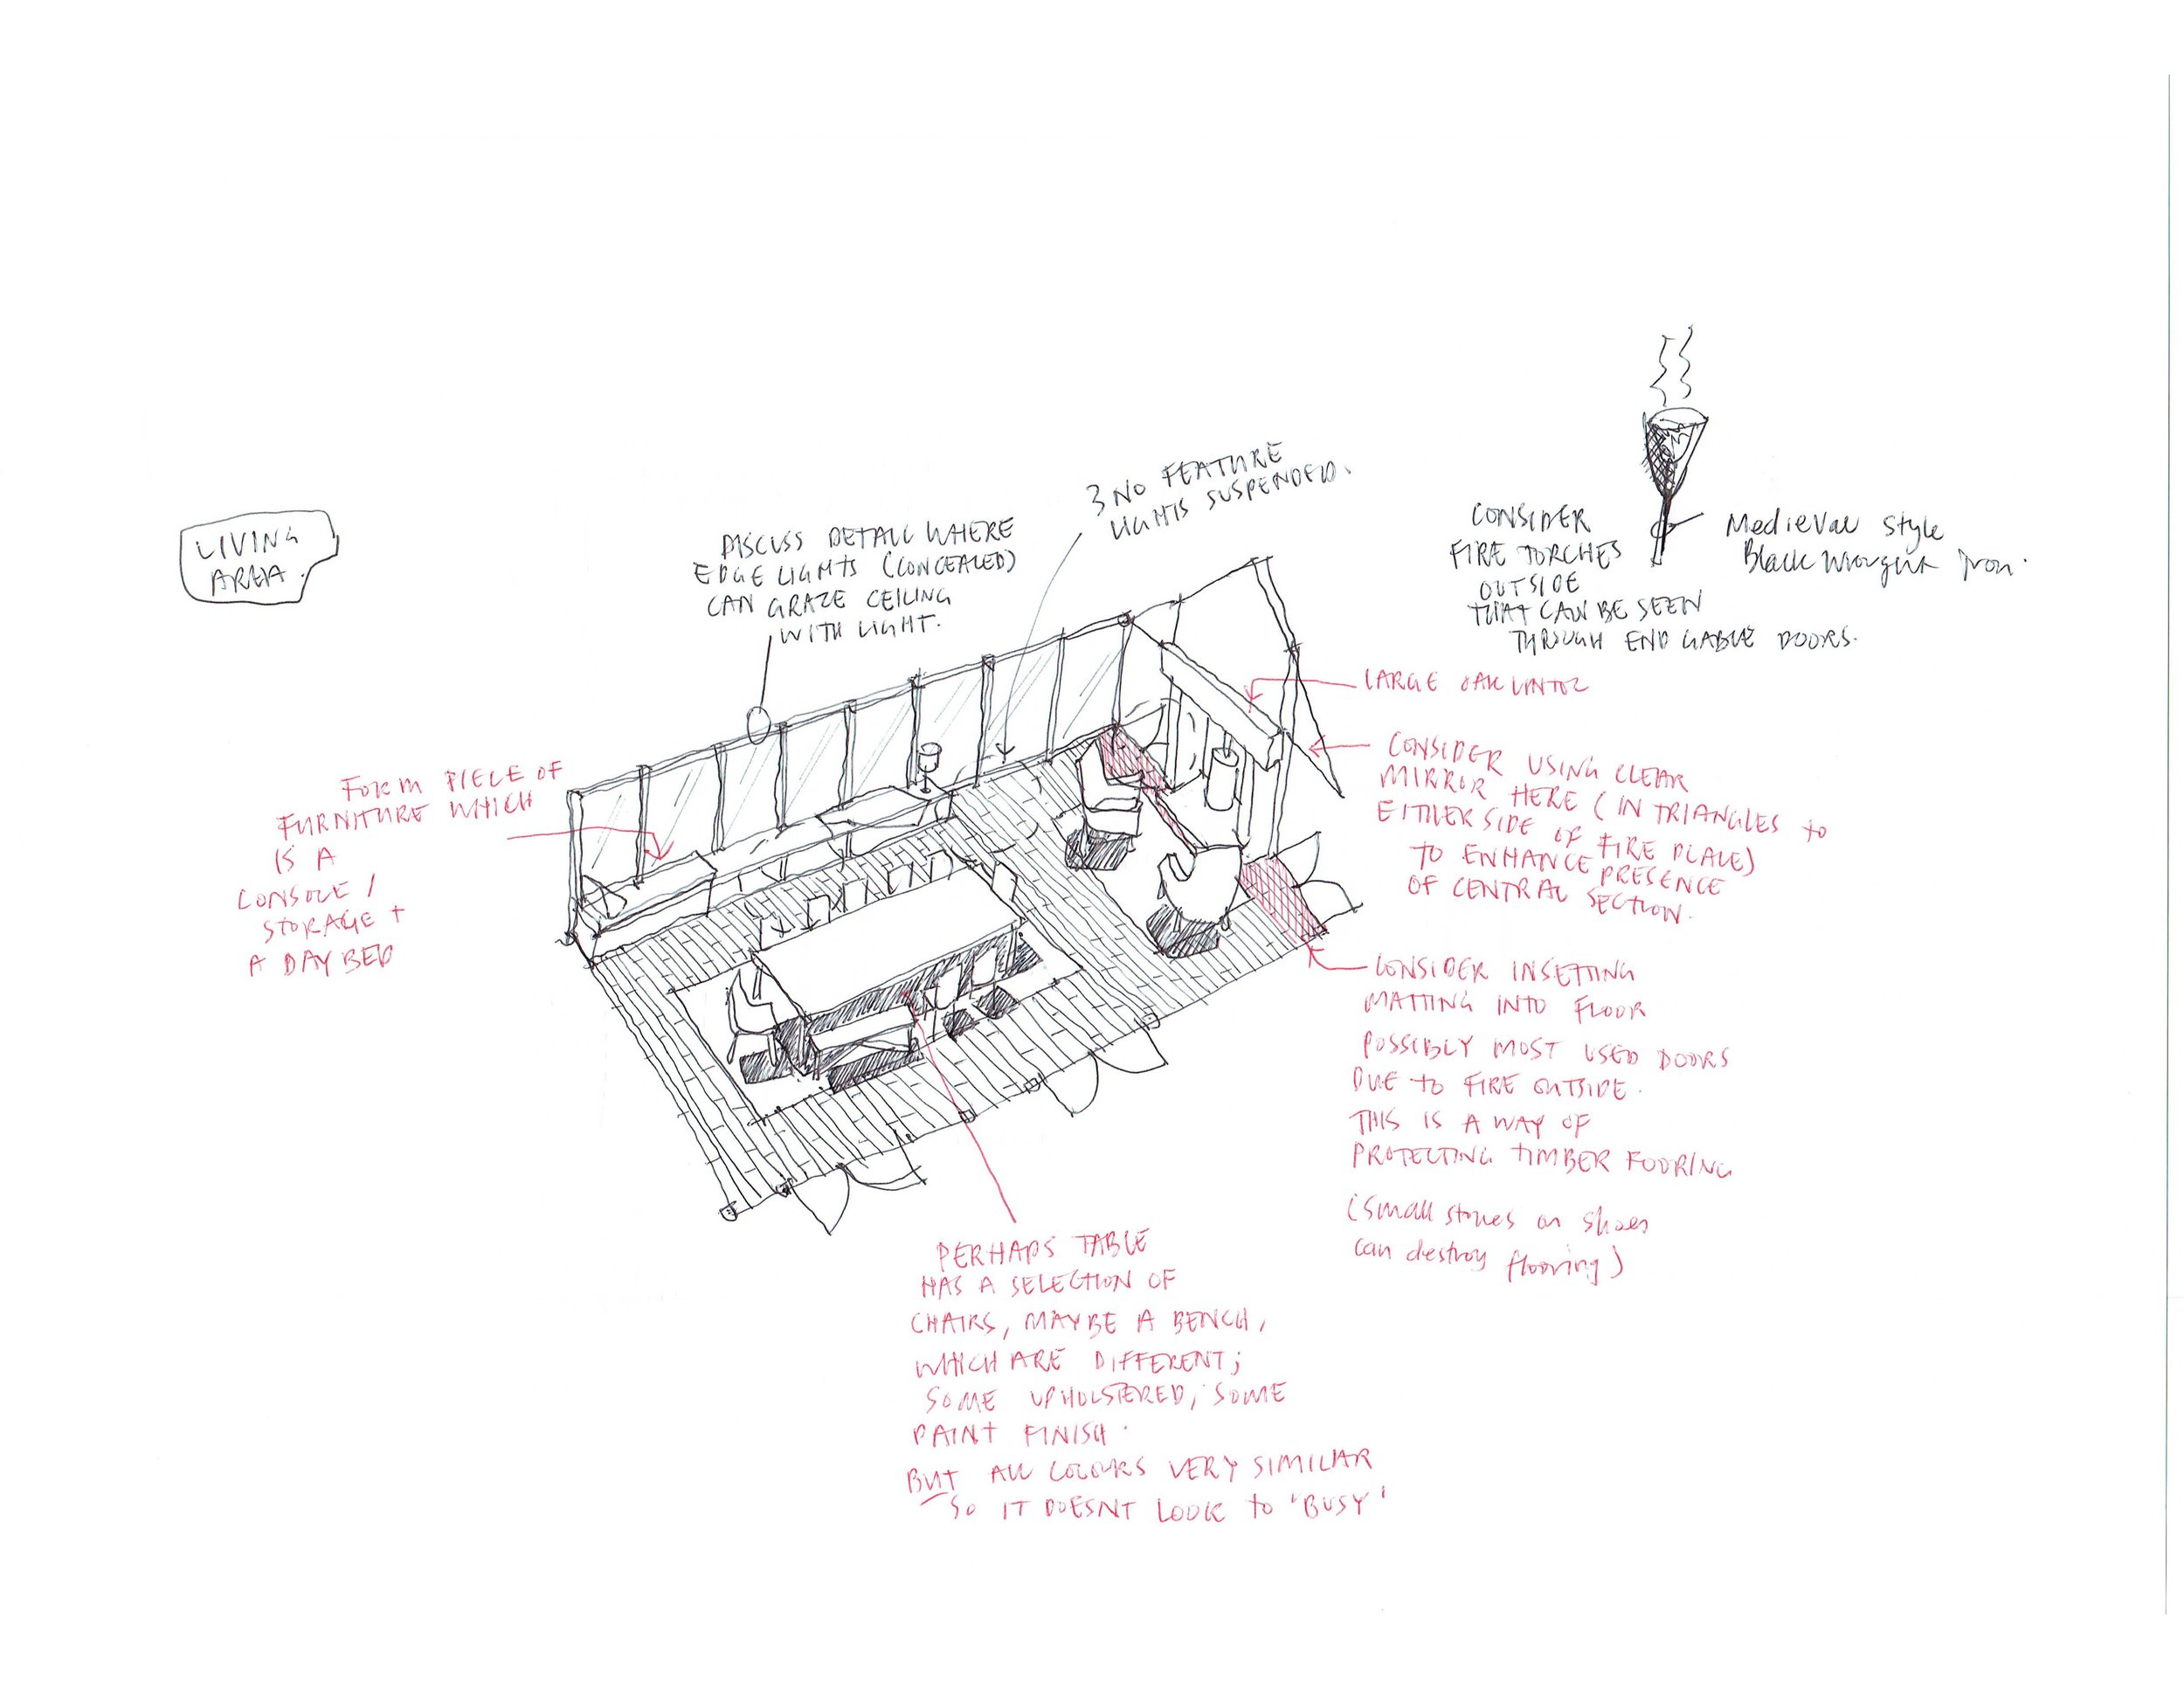 LIVING
AREA.
DISCUSS DETAIL WHERE
EDGE LIGHTS (CONCEALED)
CAN GRAZE CEILING
WITH LIGHT.
3 NO FEATURE
LIGHTS SUSPENDED.
CONSIDER
FIRE TORCHES
OUTSIDE
THAT CAN BE SEEN
THROUGH END GABLE DOORS.
Medieval style
Black wrought iron.
LARGE OAK LINTOL
CONSIDER USING CLEAR
MIRROR HERE (IN TRIANGLES TO
EITHER SIDE OF FIRE PLACE)
TO ENHANCE PRESENCE
OF CENTRAL SECTION.
FORM PIECE OF
FURNITURE WHICH
IS A
CONSOLE /
STORAGE +
A DAY BED
CONSIDER INSETTING
MATTING INTO FLOOR
POSSIBLY MOST USED DOORS
DUE TO FIRE OUTSIDE.
THIS IS A WAY OF
PROTECTING TIMBER FOORING
(small stones on shoes
can destroy flooring)
PERHAPS TABLE
HAS A SELECTION OF
CHAIRS, MAYBE A BENCH,
WHICH ARE DIFFERENT;
SOME UPHOLSTERED, SOME
PAINT FINISH.
BUT ALL COLOURS VERY SIMILAR
SO IT DOESNT LOOK TO 'BUSY'